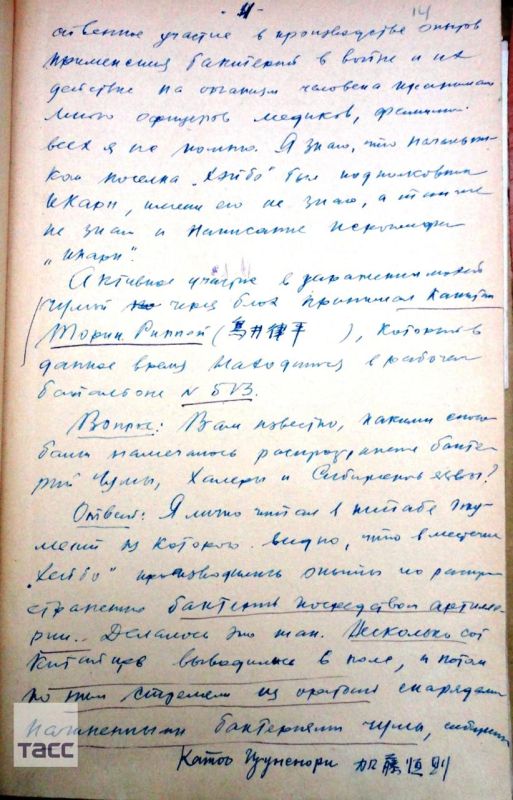 - 11 - 14
ственное участие в производстве опытов
применения бактерий в войне и их
действие на организм человека принимали
много офицеров медиков, фамилии
всех я не помню. Я знаю, что начальни-
ком поселка „Хэйбо" был подполковник
Икари, имени его не знаю, а также
не знаю и написание иероглифа
„Икари".
Активное участие в заражении людей
чумой через блох принимал капитан
Тории Риппей (鳥井律平), который в
данное время находится в рабочем
батальоне N 513.
Вопрос: Вам известно, какими спосо-
бами намечалось распространение бакте-
рий чумы, холеры и сибирской язвы?
Ответ: Я лично читал в штабе доку-
мент из которого видно, что в местечке
„Хейбо" производились опыты по распро-
странению бактерий посредством артилле-
рии. Делалось это так. Несколько сот
китайцев выводились в поле, и потом
по ним стреляли из орудий снарядами
начиненными бактериями чумы, сибирск
Катоо Цуненори 加藤恒則
ТАСС